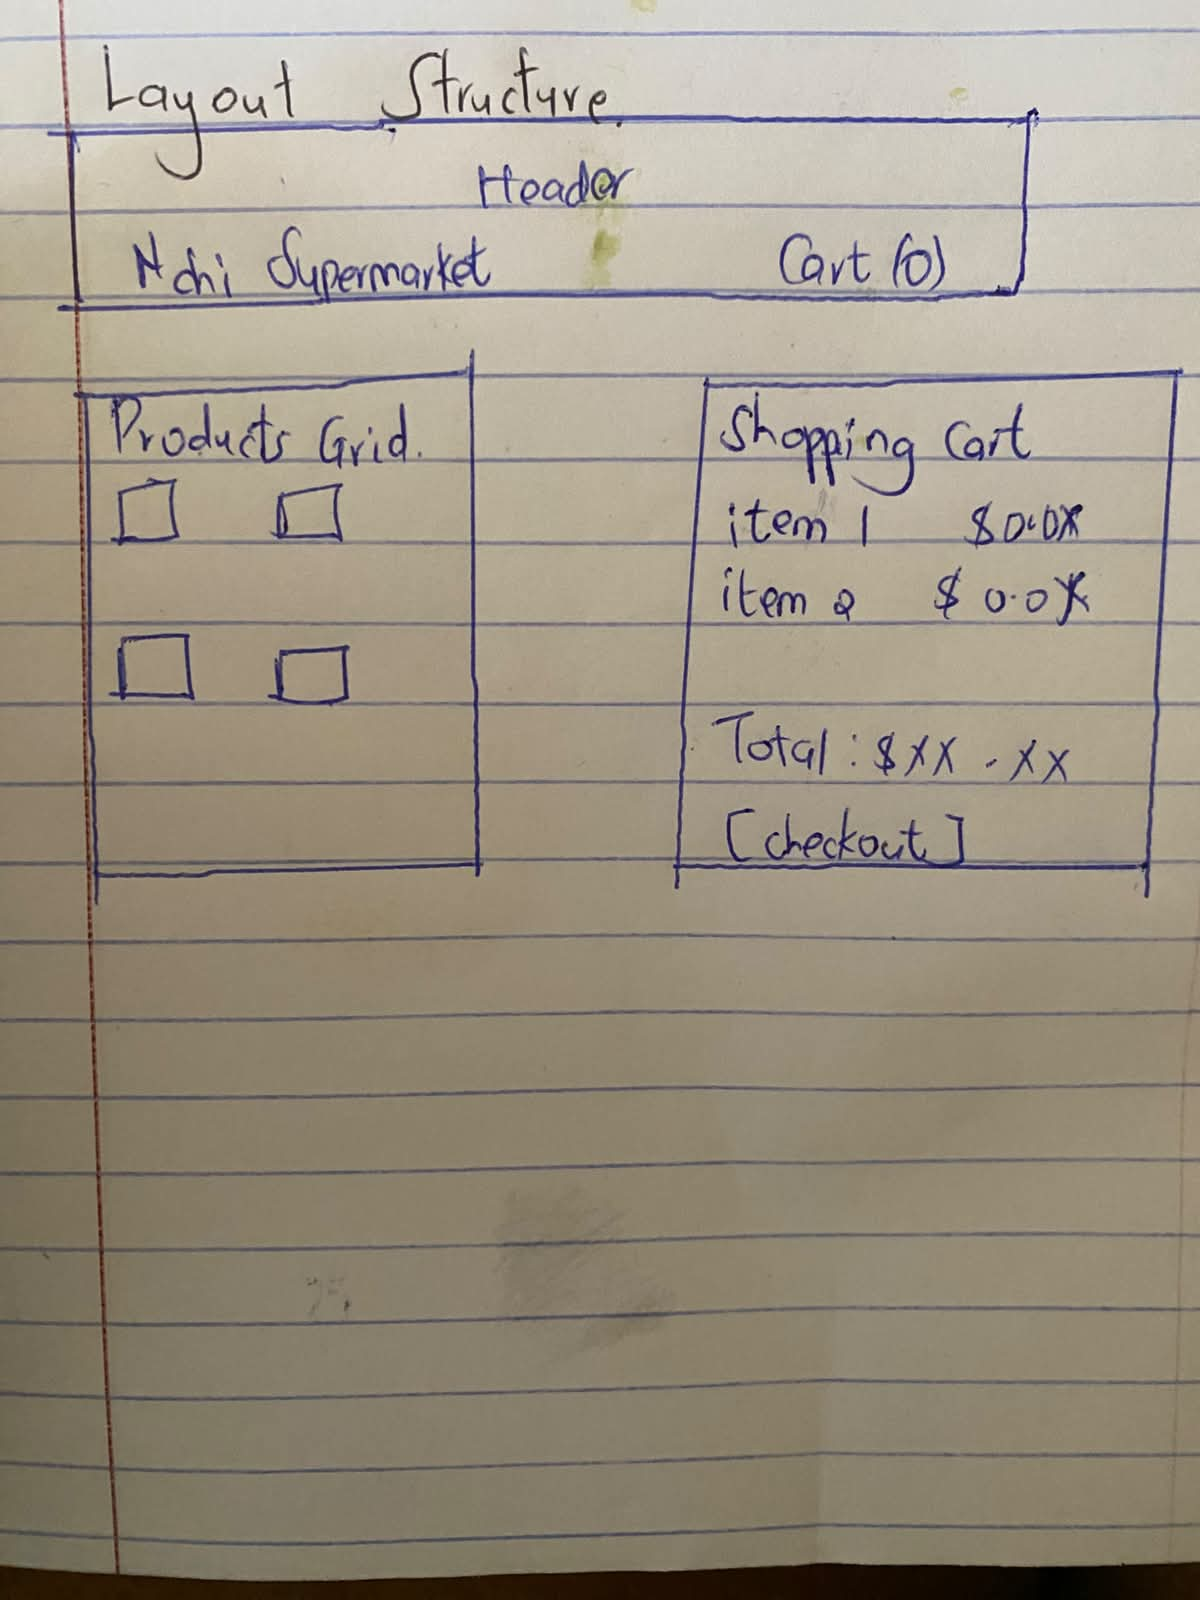 Layout Structure.
Header
Nchi Supermarket Cart (0)
Products Grid.
Shopping Cart
item 1 $0.0X
item 2 $0.0X
Total: $XX.XX
[checkout]